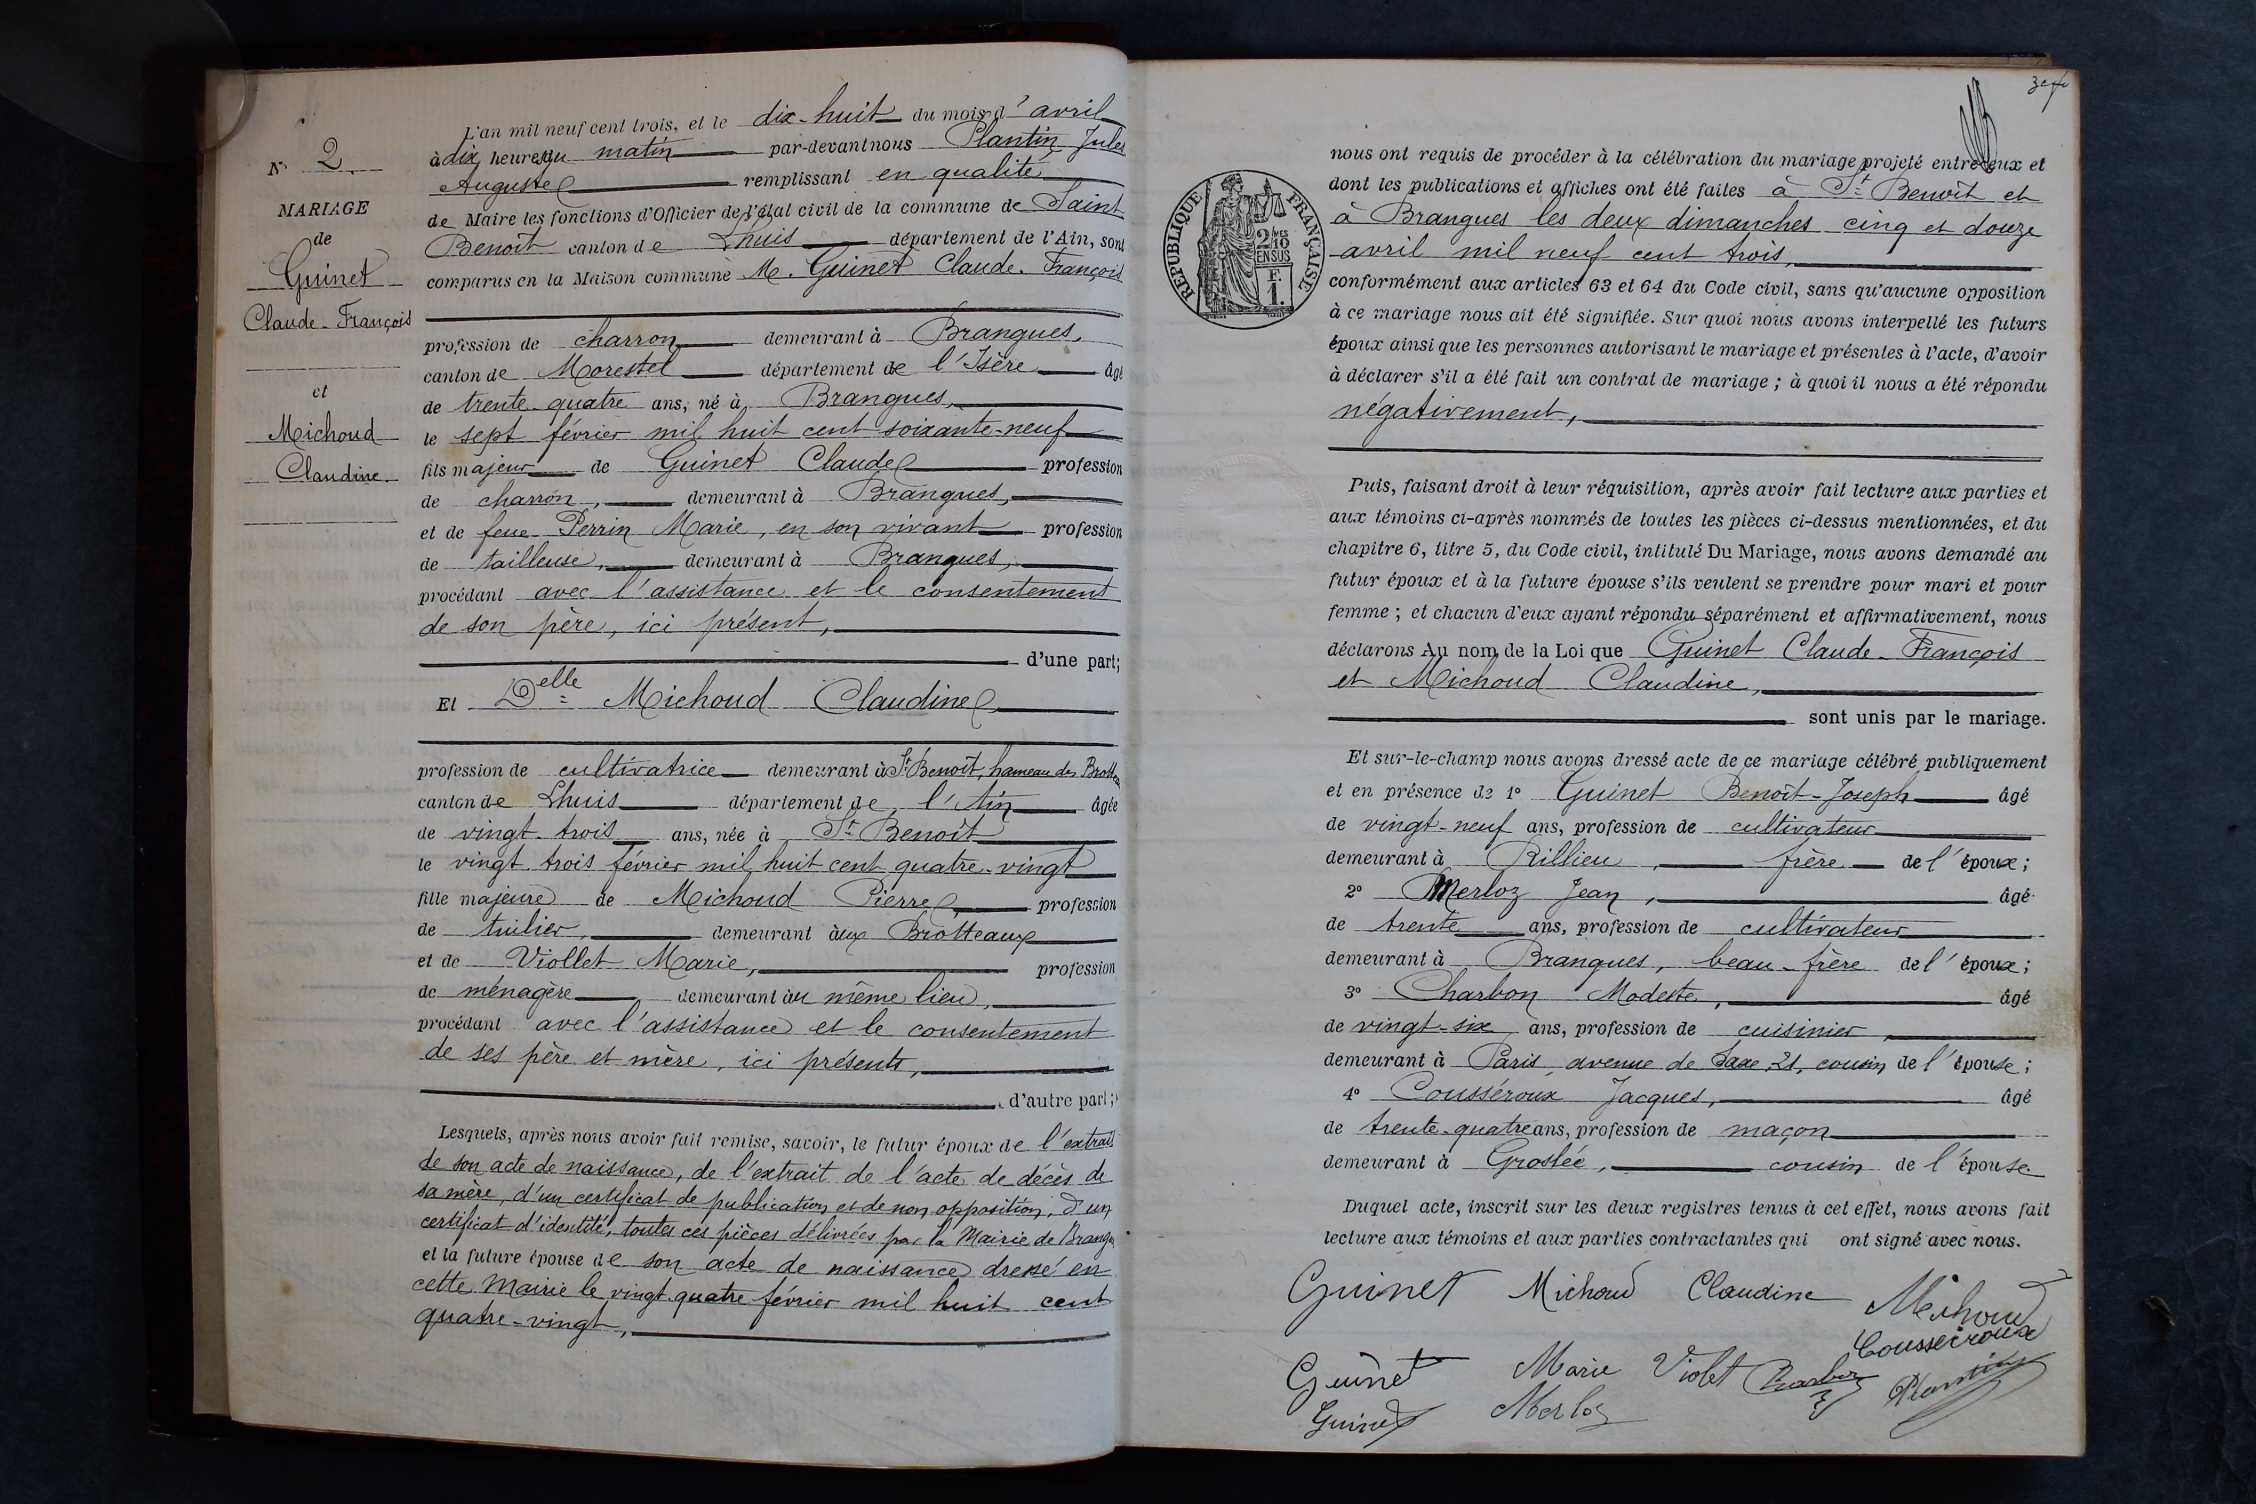 N° 2
MARIAGE
de
Guinet
Claude-François
et
Michoud
Claudine.
L'an mil neuf cent trois, et le dix-huit du mois d'avril
à dix heures du matin par-devant nous Plantin Jules
Auguste remplissant en qualité
de Maire les fonctions d'Officier de l'état civil de la commune de Saint
Benoît canton de Lhuis département de l'Ain, sont
comparus en la Maison commune M. Guinet Claude-François
profession de charron demeurant à Brangues,
canton de Morestel département de l'Isère âgé
de trente-quatre ans, né à Brangues,
le sept février mil huit cent soixante-neuf
fils majeur de Guinet Claude profession
de charron, demeurant à Brangues,
et de feue Perrin Marie, en son vivant profession
de tailleuse, demeurant à Brangues,
procédant avec l'assistance et le consentement
de son père, ici présent,
d'une part;
Et Delle Michoud Claudine
profession de cultivatrice demeurant à St Benoît, hameau des Brotteaux
canton de Lhuis département de l'Ain âgée
de vingt-trois ans, née à St Benoît
le vingt-trois février mil huit cent quatre-vingt
fille majeure de Michoud Pierre, profession
de tuilier, demeurant aux Brotteaux
et de Viollet Marie, profession
de ménagère demeurant au même lieu,
procédant avec l'assistance et le consentement
de ses père et mère, ici présents,
d'autre part;
Lesquels, après nous avoir fait remise, savoir, le futur époux de l'extrait
de son acte de naissance, de l'extrait de l'acte de décès de
sa mère, d'un certificat de publication et de non opposition, d'un
certificat d'identité, toutes ces pièces délivrées par la Mairie de Brangues
et la future épouse de son acte de naissance dressé en
cette Mairie le vingt-quatre février mil huit cent
quatre-vingt,
RÉPUBLIQUE FRANÇAISE
2/10 EN SUS
F. 1.
nous ont requis de procéder à la célébration du mariage projeté entre eux et
dont les publications et affiches ont été faites à St Benoît et
à Brangues les deux dimanches cinq et douze
avril mil neuf cent trois,
conformément aux articles 63 et 64 du Code civil, sans qu'aucune opposition
à ce mariage nous ait été signifiée. Sur quoi nous avons interpellé les futurs
époux ainsi que les personnes autorisant le mariage et présentes à l'acte, d'avoir
à déclarer s'il a été fait un contrat de mariage ; à quoi il nous a été répondu
négativement,
Puis, faisant droit à leur réquisition, après avoir fait lecture aux parties et
aux témoins ci-après nommés de toutes les pièces ci-dessus mentionnées, et du
chapitre 6, titre 5, du Code civil, intitulé Du Mariage, nous avons demandé au
futur époux et à la future épouse s'ils veulent se prendre pour mari et pour
femme ; et chacun d'eux ayant répondu séparément et affirmativement, nous
déclarons Au nom de la Loi que Guinet Claude-François
et Michoud Claudine,
sont unis par le mariage.
Et sur-le-champ nous avons dressé acte de ce mariage célébré publiquement
et en présence de 1° Guinet Benoît-Joseph âgé
de vingt-neuf ans, profession de cultivateur
demeurant à Rillieu, frère de l'époux;
2° Merloz Jean, âgé
de trente ans, profession de cultivateur
demeurant à Brangues, beau-frère de l'époux;
3° Charbon Modeste, âgé
de vingt-six ans, profession de cuisinier,
demeurant à Paris, avenue de Saxe, 21, cousin de l'épouse;
4° Cousséroux Jacques, âgé
de trente-quatre ans, profession de maçon
demeurant à Groslée, cousin de l'épouse
Duquel acte, inscrit sur les deux registres tenus à cet effet, nous avons fait
lecture aux témoins et aux parties contractantes qui ont signé avec nous.
Guinet Michoud Claudine Michoud
Cousseiroux
Guinet Marie Violet Charbon Plantin
Guinet Merloz